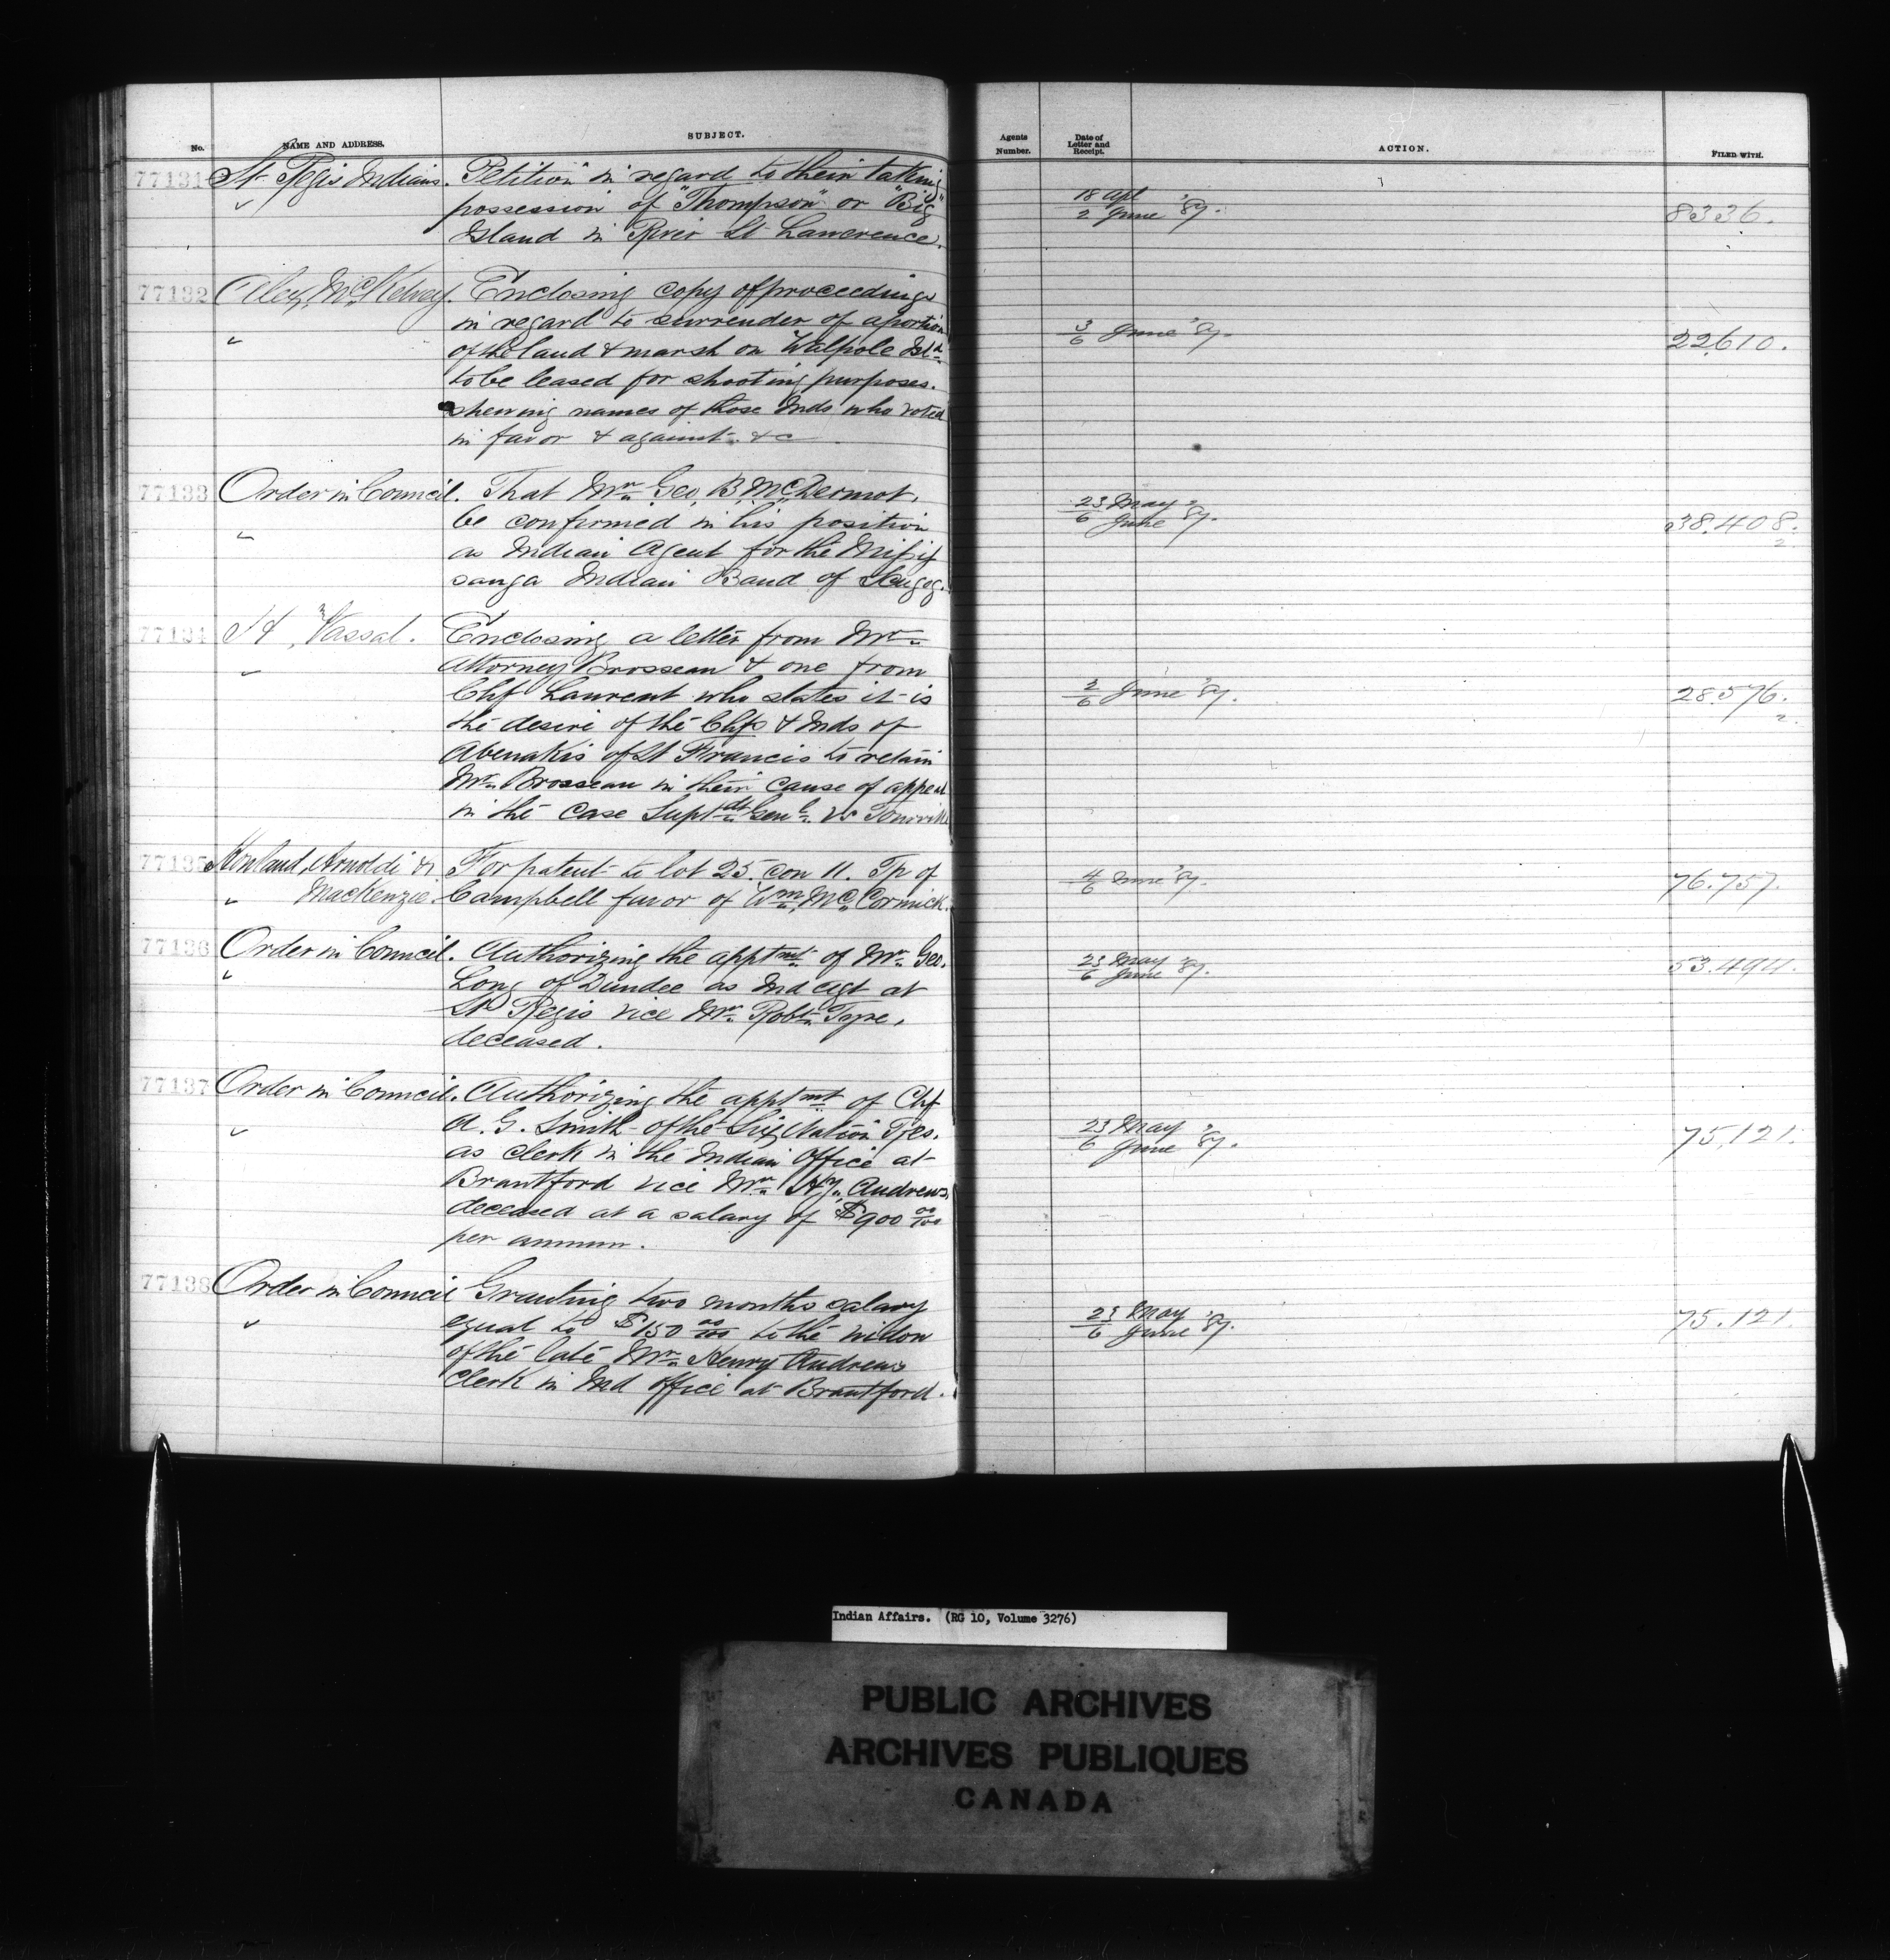 No. NAME AND ADDRESS. SUBJECT. Agents Number. Date of Letter and Receipt. ACTION. FILED WITH.
77131 St Regis Indians. Petition in regard to their taking
" possession of "Thompson" or "Big" 18 Apl / 2 June '87. 8336.
Island in River St Lawrence.
77132 Alex, McKelvey. Enclosing copy of proceedings
in regard to surrender of a portion 3/6 June '87. 22610.
" of the land & marsh on Walpole Isld
to be leased for shooting purposes.
shewing names of those Inds who voted
in favor & against &c
77133 Order in Council. That Mr Geo, B, McDermot,
" be confirmed in his position 23 May / 6 June '87. 38.408. 2.
as Indian Agent for the Missis
sauga Indian Band of Scugog.
77134 H, Vassal. Enclosing a letter from Mr
" Attorney Brosseau & one from
Chf Laurent who states it is 2/6 June '87. 28.576. 2.
the desire of the Chfs & Inds of
Abenakis of St Francis to retain
Mr Brosseau in their cause of appeal
in the case Suptdt Genl vs Tourville
77135 Howland, Arnoldi & For patent to lot 25. con 11. Tp of 4/6 June '87. 76.757.
" MacKenzie. Campbell favor of Wm, McCormick.
77136 Order in Council. Authorizing the apptmt of Mr Geo. 23 May / 6 June '87. 53.494.
" Long of Dundee as Ind Agt at
St Regis vice Mr Robt Tyre,
deceased.
77137 Order in Council. Authorizing the apptmt of Chf
" A. G. Smith of the Six Nation Res. 23 May / 6 June '87. 75.121.
as clerk in the Indian Office at
Brantford vice Mr Hy, Andrews,
deceased at a salary of $900 00/100
per annum.
77138 Order in Council Granting two months salary
" equal to $150 00/100 to the widow 23 May / 6 June '87. 75.121.
of the late Mr Henry Andrews
Clerk in Ind Office at Brantford.
Indian Affairs. (RG 10, Volume 3276)
PUBLIC ARCHIVES
ARCHIVES PUBLIQUES
CANADA